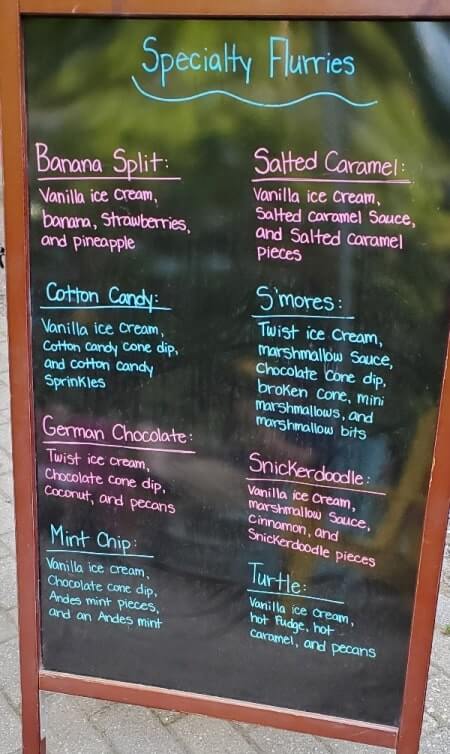 Specialty Flurries
Banana Split:
Vanilla ice cream,
banana, Strawberries,
and pineapple
Cotton Candy:
Vanilla ice cream,
Cotton candy cone dip,
and cotton candy
Sprinkles
German Chocolate:
Twist ice cream,
Chocolate cone dip,
Coconut, and pecans
Mint Chip:
Vanilla ice cream,
Chocolate cone dip,
Andes mint pieces,
and an Andes mint
Salted Caramel:
Vanilla ice cream,
Salted caramel Sauce,
and Salted Caramel
pieces
S'mores:
Twist ice cream,
marshmallow Sauce,
Chocolate cone dip,
broken cone, mini
marshmallows, and
marshmallow bits
Snickerdoodle:
Vanilla ice cream,
marshmallow Sauce,
Cinnamon, and
Snickerdoodle pieces
Turtle:
Vanilla ice cream,
hot fudge, hot
caramel, and pecans